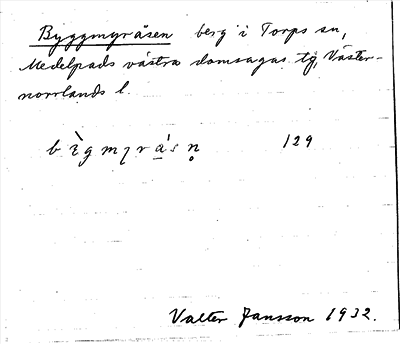 Byggmyråsen berg i Torps sn,
Medelpads västra domsagas tg, Väster-
norrlands l.
129
Valter Jansson 1932.